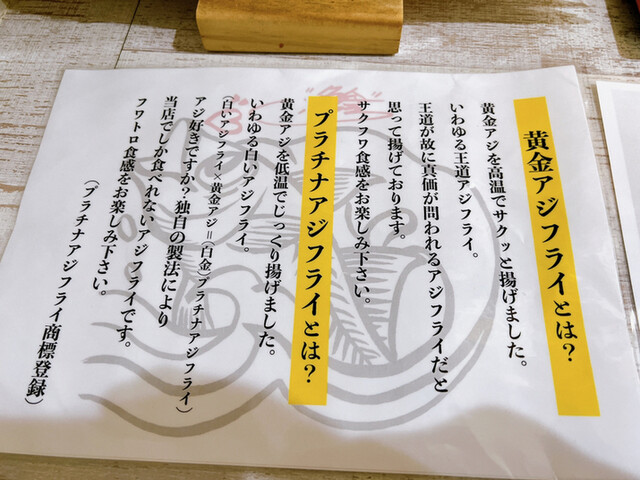 黄金アジフライとは？
黄金アジを高温でサクッと揚げました。
いわゆる王道アジフライ。
王道が故に真価が問われるアジフライだと
思って揚げております。
サクフワ食感をお楽しみ下さい。
プラチナアジフライとは？
黄金アジを低温でじっくり揚げました。
いわゆる白いアジフライ。
(白いアジフライ×黄金アジ＝(白金)プラチナアジフライ)
アジ好きですか？独自の製法により
当店でしか食べれないアジフライです。
フワトロ食感をお楽しみ下さい。
(プラチナアジフライ商標登録)